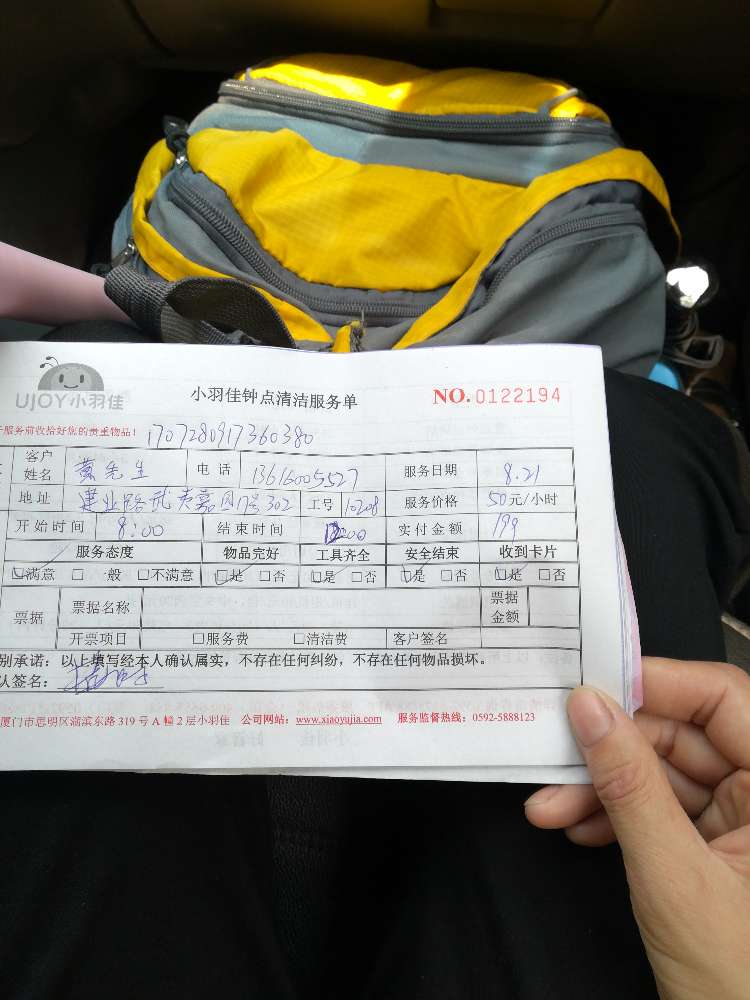 UJOY小羽佳 小羽佳钟点清洁服务单 NO.0122194
服务前收拾好您的贵重物品! 1707280917360380
客户姓名 黄先生 电话 13616005527 服务日期 8.21
地址 建业路武夷嘉园7号302 工号 10208 服务价格 50元/小时
开始时间 8:00 结束时间 12:00 实付金额 199
服务态度 物品完好 工具齐全 安全结束 收到卡片
☑满意 □一般 □不满意 ☑是 □否 ☑是 □否 ☑是 □否 ☑是 □否
票据 票据名称 票据金额
开票项目 □服务费 □清洁费 客户签名
别承诺：以上填写经本人确认属实，不存在任何纠纷，不存在任何物品损坏。
认签名：
厦门市思明区湖滨东路319号A幢2层小羽佳 公司网站：www.xiaoyujia.com 服务监督热线：0592-5888123